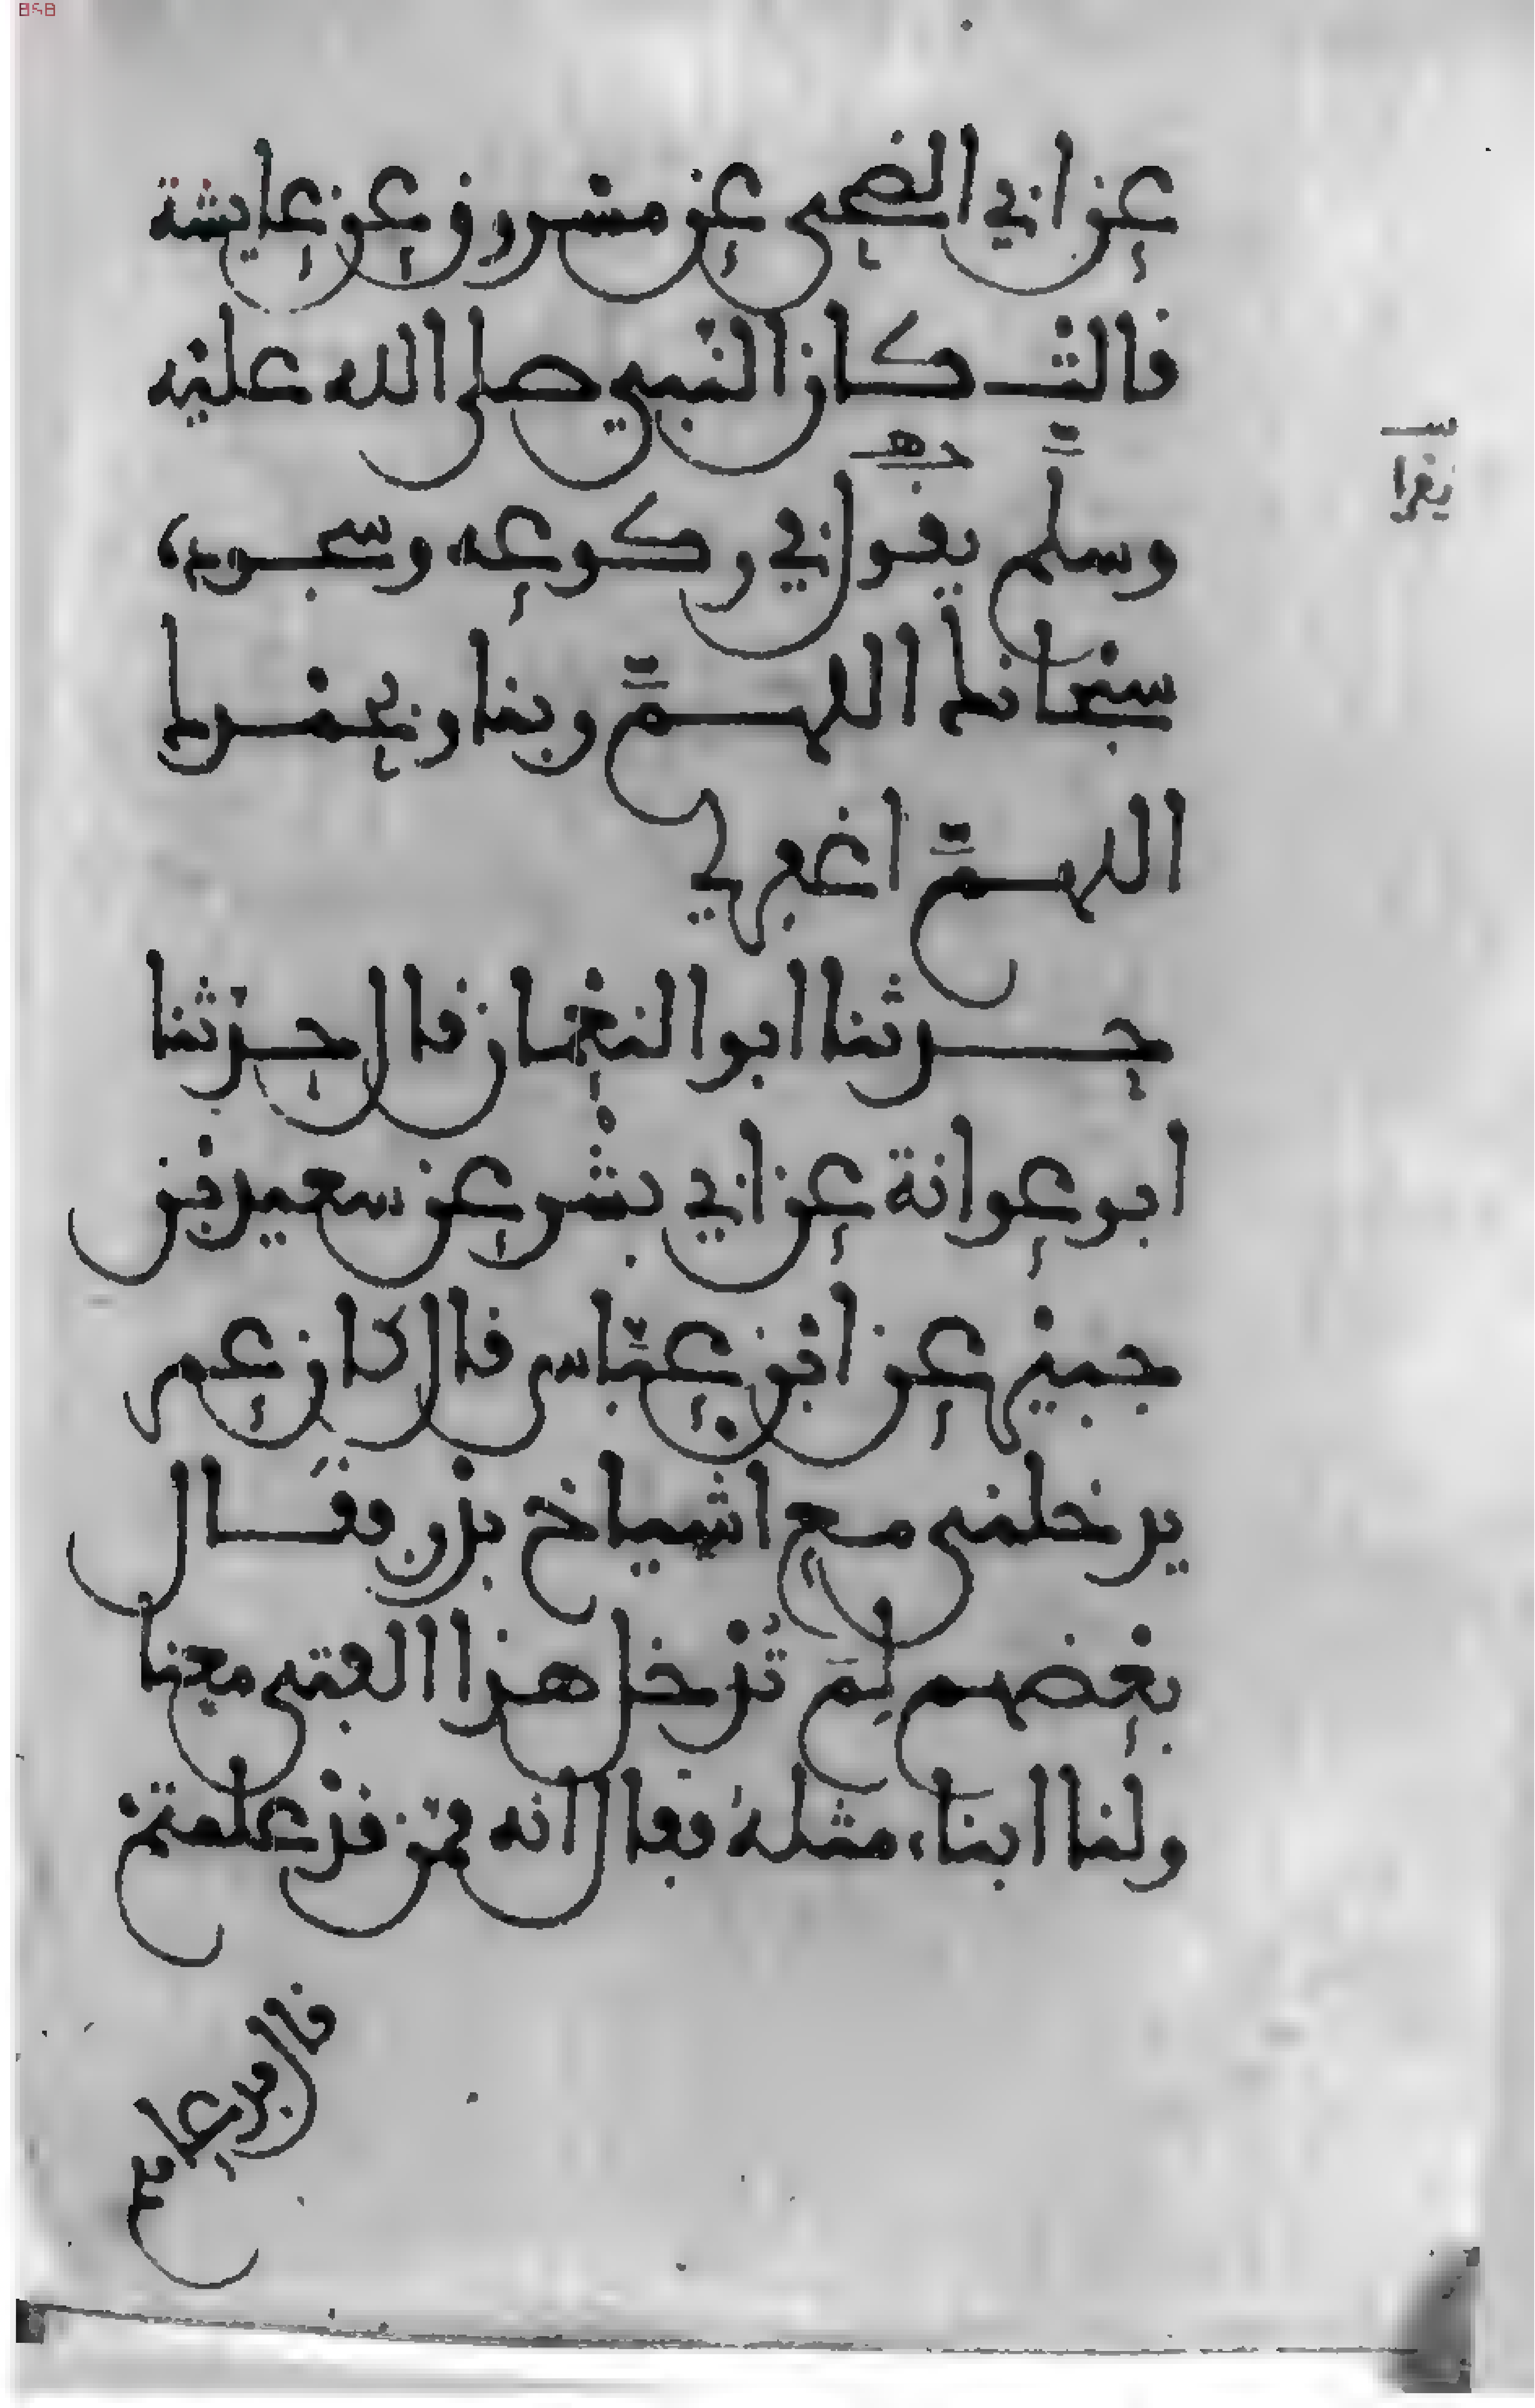 عن ابي الضحى عن مسروق عن عايشة
قالت كان النبي صلى الله عليه
وسلم يقول في ركوعه وسجوده
سبحانك اللهم ربنا وبحمدك
اللهم اغفر لي
حدثنا ابو النعمان قال حدثنا
ابو عوانة عن ابي بشر عن سعيد بن
جبير عن ابن عباس قال كان عمر
يدخلني مع اشياخ بدر فقال
بعضهم لم تدخل هذا الفتى معنا
ولنا ابناء مثله فقال انه ممن قد علمتم
قال فدعاهم
يقرا